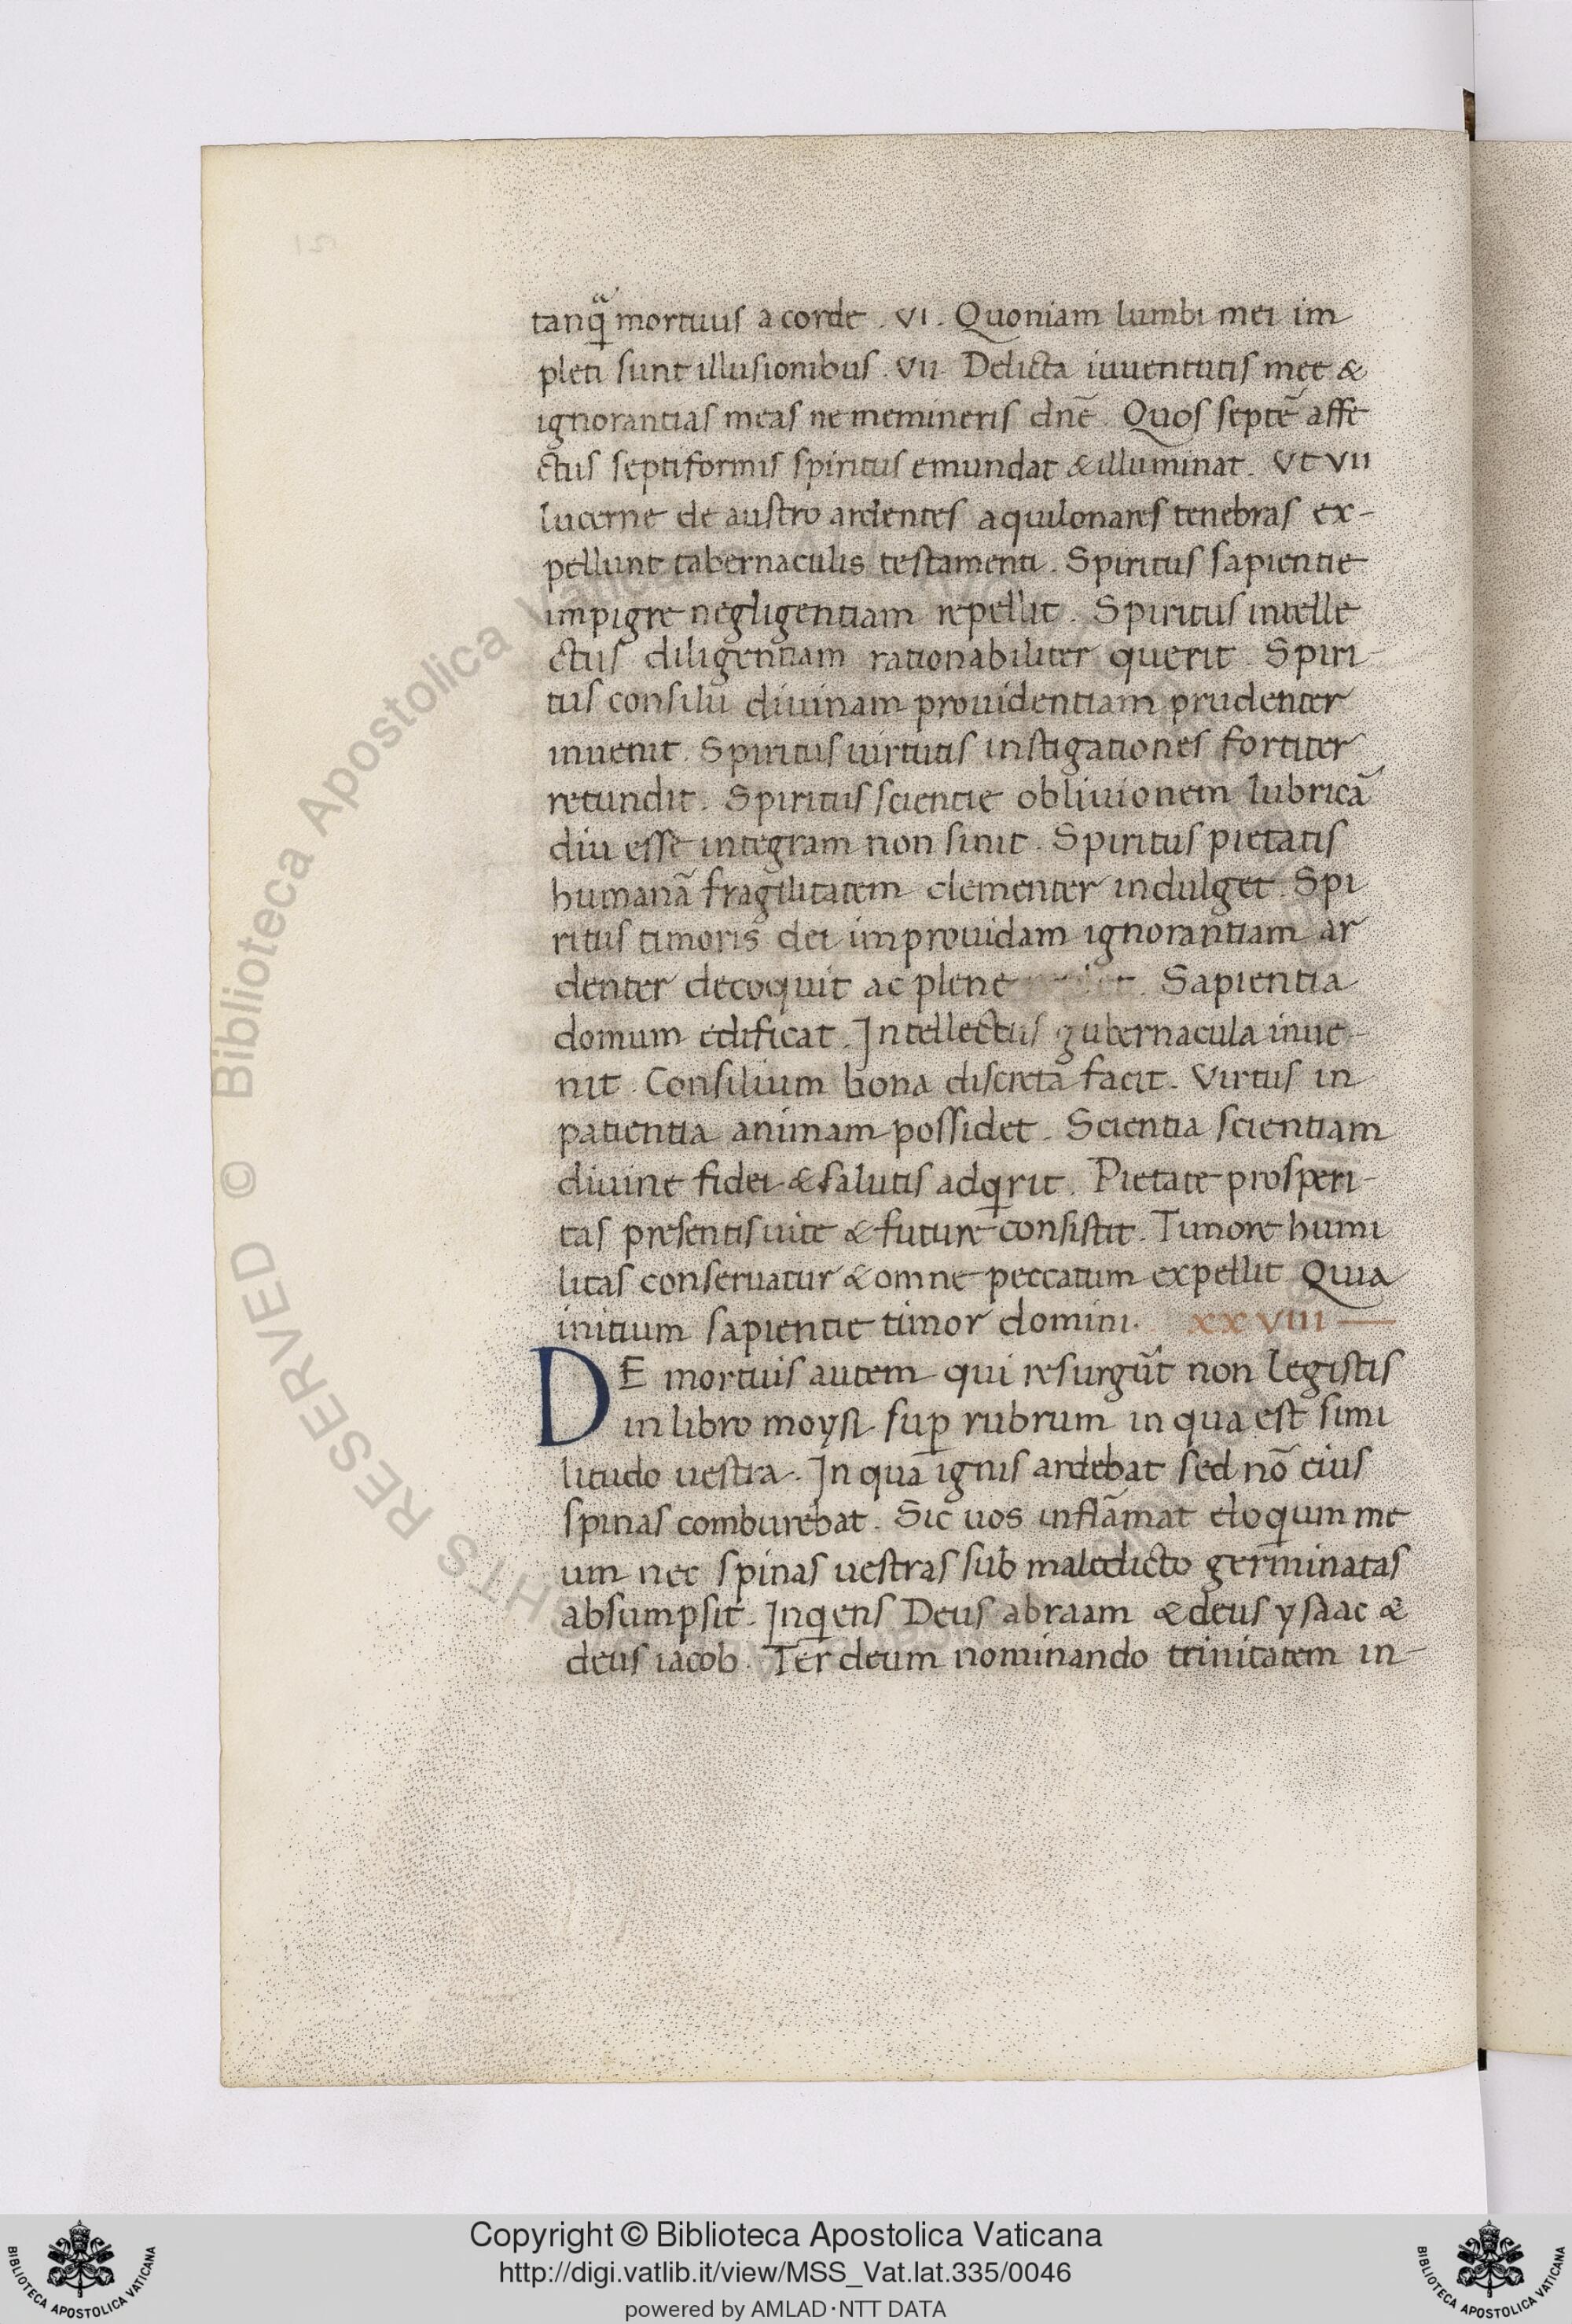 tanqᷓ mortuus a corde . VI . Quoniam lumbi mei im
pleti sunt illusionibus . VII Delicta iuuentutis meę &
ignorantias meas ne memineris dnē . Quos septē affe
ctus septiformis spiritus emundat & illuminat . Vt VII
lucerne de austro ardentes aquilonares tenebras ex-
pellunt tabernaculis testamenti . Spiritus sapientie
impigre negligentiam repellit . Spiritus intelle
ctus diligentiam rationabiliter querit . Spiri
tus consilii diuinam prouidentiam prudenter
inuenit . Spiritus uirtutis instigationes fortiter
retundit . Spiritus scientie obliuionem lubricā
diu esse integram non sinit . Spiritus pietatis
humanā fragilitatem clementer indulget . Spi
ritus timoris dei improuidam ignorantiam ar
denter decoquit ac plene . Sapientia
domum edificat . Intellectus gubernacula inue-
nit . Consilium bona discreta facit . Virtus in
patientia animam possidet . Scientia scientiam
diuine fidei & salutis adqͥrit . Pietate prosperi-
tas presentis uite & future consistit . Timore humi
litas conseruatur & omne peccatum expellit Quia
initium sapientie timor domini . XXVIII
DE mortuis autem qui resurgūt non legistis
in libro moysi sup̱ rubrum in qua est simi
litudo uestra . In qua ignis ardebat sed nō eius
spinas comburebat . Sic uos inflāmat eloqͥum me
um nec spinas uestras sub maledicto germinatas
absumpsit . Inqͥens Deus abraam & deus ysaac &
deus iacob . Ter deum nominando trinitatem in-
BIBLIOTECA APOSTOLICA VATICANA
Copyright © Biblioteca Apostolica Vaticana
http://digi.vatlib.it/view/MSS_Vat.lat.335/0046
powered by AMLAD·NTT DATA
BIBLIOTECA APOSTOLICA VATICANA